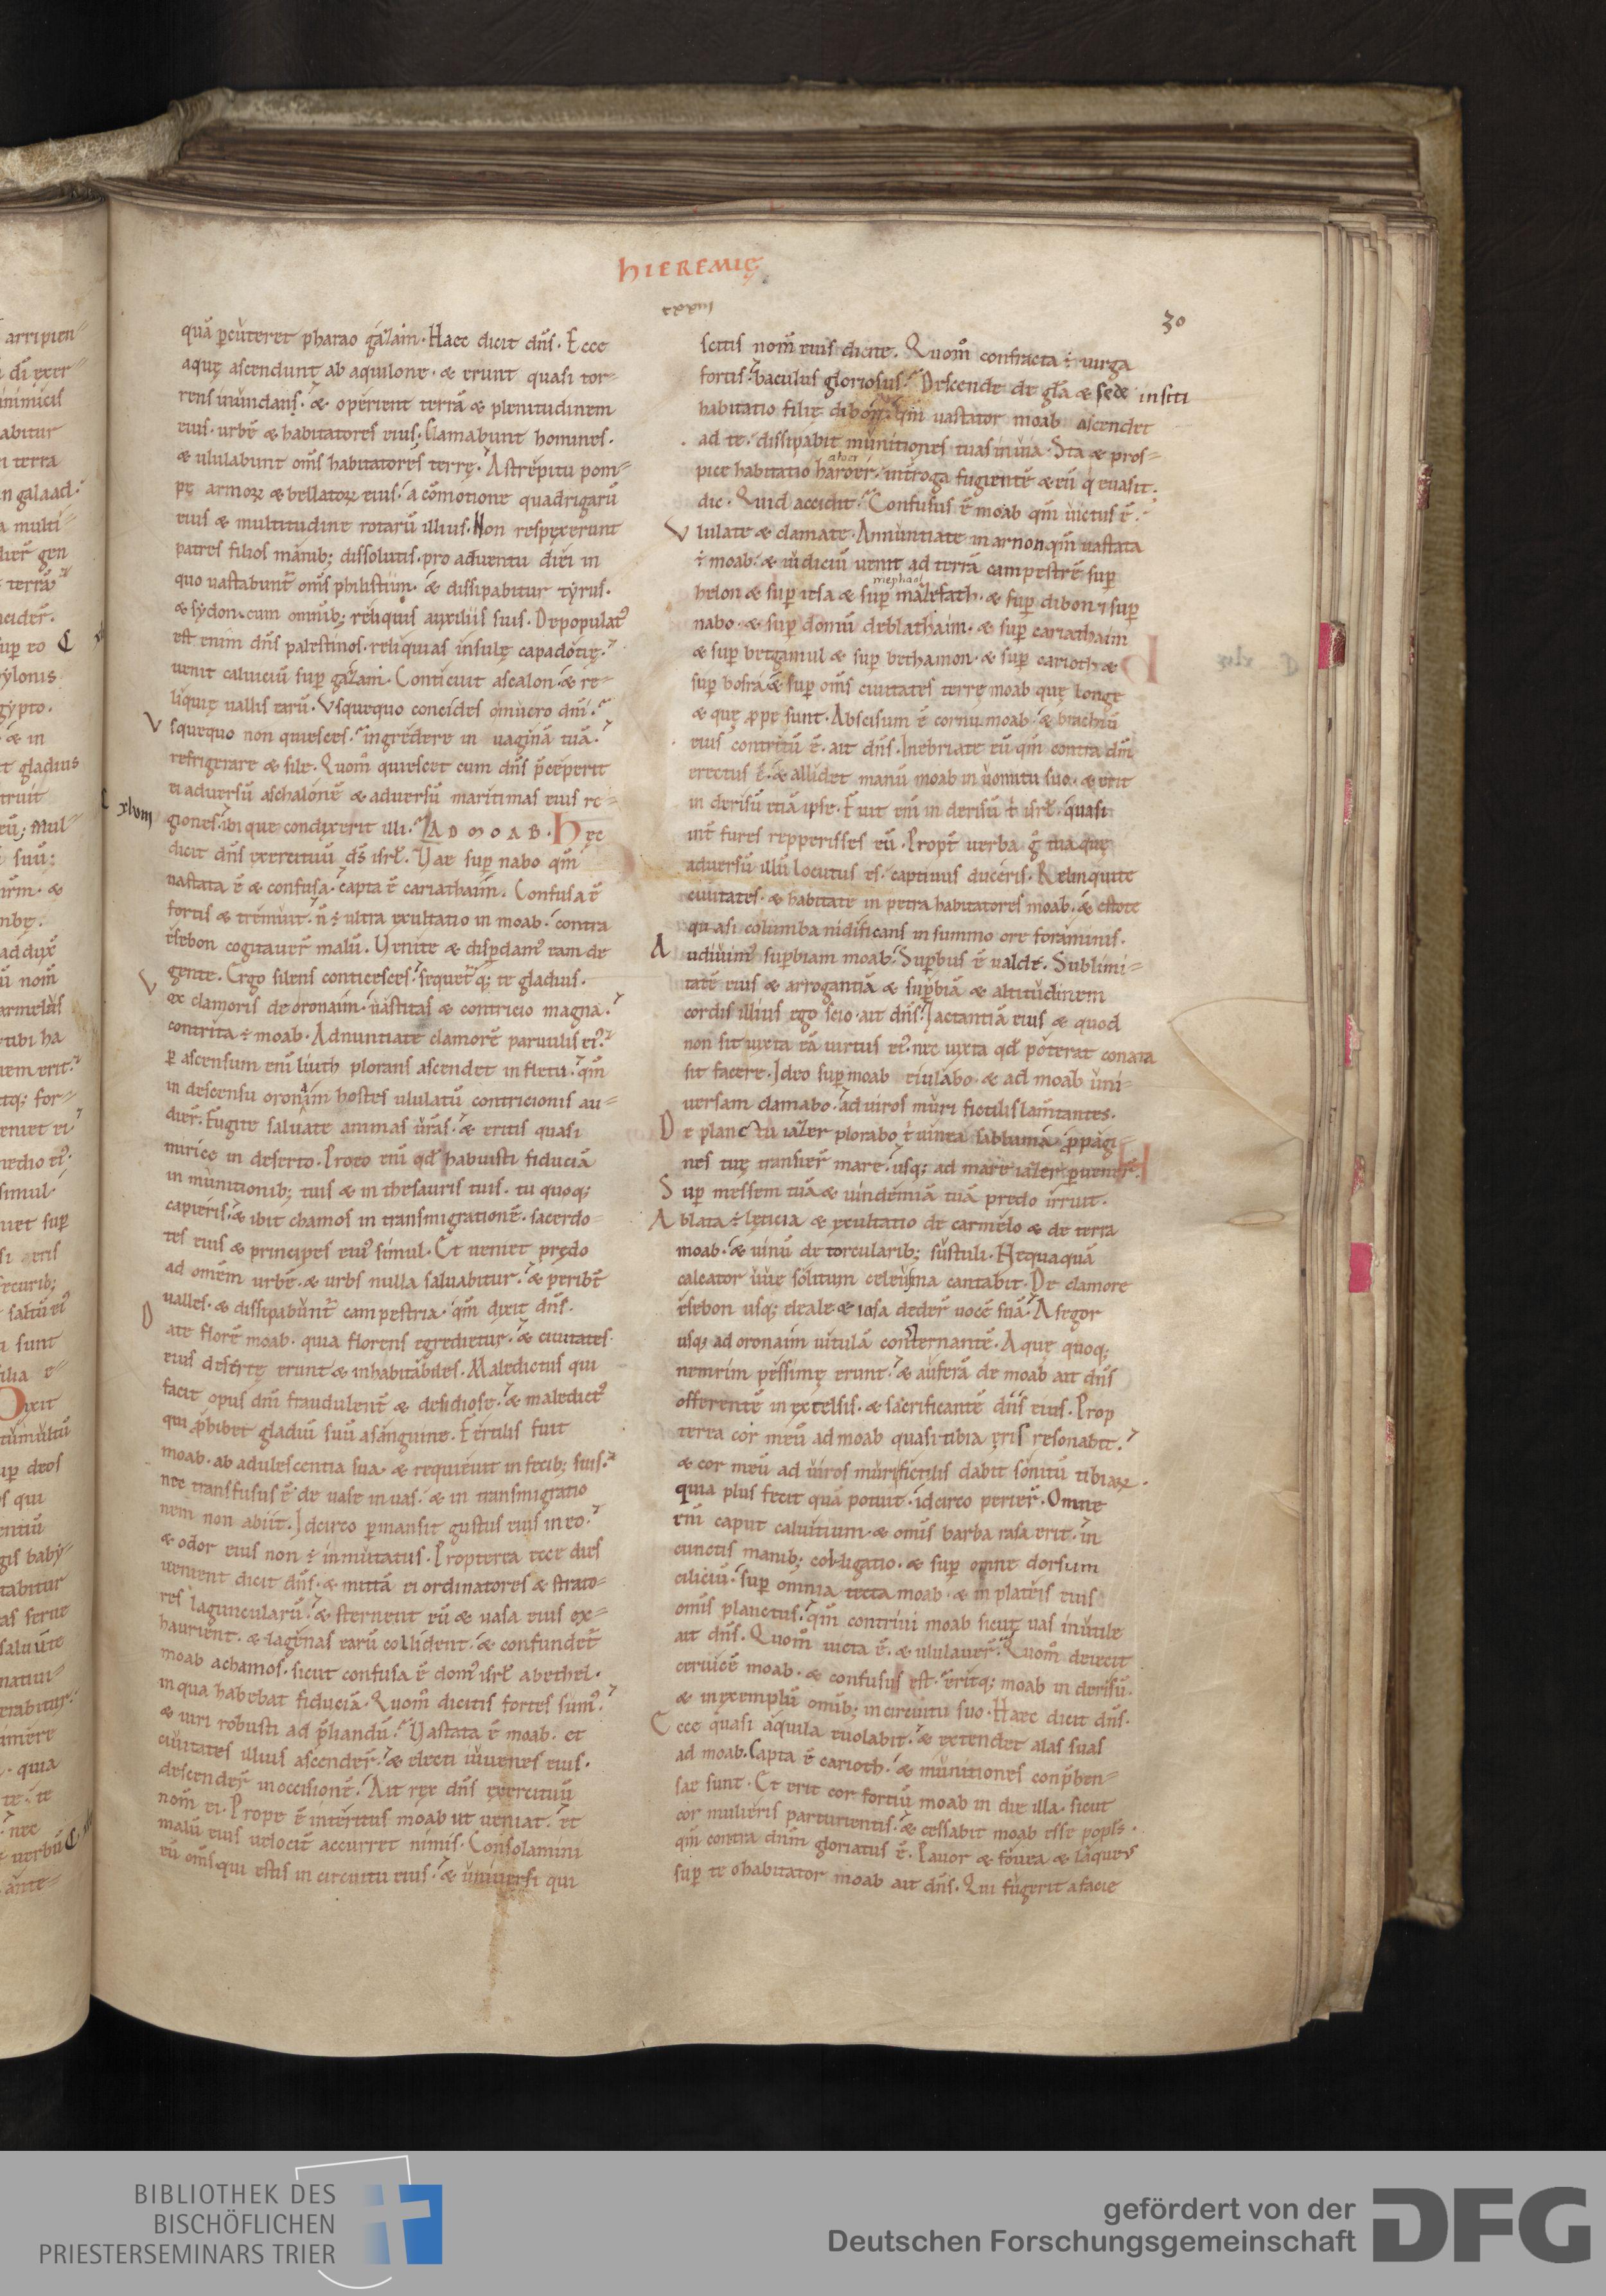 HIEREMIĘ
cxxiii
30
quā pcuteret pharao gazam. Haec dicit dn̄s. Ecce
aquę ascendunt ab aquilone. & erunt quasi tor-
rens inundans. & operient terrā & plenitudinem
eius. urbē & habitatores eius; Clamabunt homines.
& ululabunt om̄s habitatores terrę. A strepitu pom-
pę armoꝝ & bellatoꝝ eius. a cōmotione quadrigarū
eius & multitudine rotarū illius. Non respexerunt
patres filios manib; dissolutis. pro aduentu diei in
quo uastabunt̄ om̄s philistiim. & dissipabitur tyrus.
& sydon. cum omnib; reliquis auxiliis suis. Depopulat᷒
est enim dn̄s palestinos. reliquias insulę capadotię.
uenit caluiciū sup gazam. Conticuit ascalon. & re-
liquię uallis earū. Vsquequo concides o mucro dn̄i.
Vsquequo non quiesces. ingredere in uaginā tuā.
refrigerare & sile. Quom̄ quiescet cum dn̄s p̄ceperit
ei aduersū aschalonē & aduersū maritimas eius re-
C xlviii giones. ibi que condixerit illi. AD MOAB. Hęc
dicit dn̄s exercituū d̄s isrł. Vae sup nabo qm̄
uastata ē & confusa. capta ē cariathaim. Confusa ē
fortis & tremuit. n̄ ÷ ultra exultatio in moab. contra
esebon cogitauer̄ malū. Venite & disp̄dam᷒ eam de
gente. Ergo silens conticesces. sequet᷒ q; te gladius.
Vox clamoris de oronaim. uastitas & contricio magna.
contrita ÷ moab. Adnuntiate clamorē paruulis ei᷒.
p ascensum enī luith plorans ascendet in fletu. qm̄
in descensu oronaim hostes ululatū contricionis au-
dier̄. Fugite saluate animas ur̄as. & eritis quasi
mirice in deserto. Pro eo enī qd̄ habuisti fiduciā
in munitionib; tuis & in thesauris tuis. tu quoq;
capieris. & ibit chamos in transmigrationē. sacerdo-
tes eius & principes ei᷒ simul. Et ueniet prędo
ad omēm urbē. & urbs nulla saluabitur. & peribt̄
ualles. & dissipabunt̄ campestria. qm̄ dixit dn̄s.
Date florē moab. quia florens egredietur. & ciuitates
eius desertę erunt & inhabitabiles. Maledictus qui
facit opus dn̄i fraudulent̄ & desidiose. & maledict᷒
qui p̄hibet gladiū suū a sanguine. Fertilis fuit
moab. ab adulescentia sua. & requieuit in fecib; suis.
nec transfusus ē de uase in uas. & in transmigratio
nem non abiit. Idcirco pmansit gustus eius in eo.
& odor eius non ÷ inmutatus. Propterea ecce dies
uenient dicit dn̄s. & mittā ei ordinatores & strato-
res laguncularū. & sternent eū & uasa eius ex-
haurient. & lagenas earū collident. & confundet̄
moab a chamos. sicut confusa ē dom᷒ isrł a bethel.
in qua habebat fiduciā. Quom̄ dicitis fortes sum᷒.
& uiri robusti ad p̄liandū. Vastata ē moab. et
ciuitates illius ascender̄. & electi iuuenes eius.
descender̄ in occisionē. Ait rex dn̄s exercituū
nom̄ ei. Prope ē interitus moab ut ueniat. et
malū eius uelocit̄ accurret nimis. Consolamini
eū om̄s qui estis in circuitu eius. & uniuersi qui
scitis nom̄ eius dicite. Quom̄ confracta ÷ uirga
fortis. baculus gloriosus. Descende de gła & sede in siti
habitatio filię dibon. qm̄ uastator moab ascendet
ad te. dissipabit munitiones tuas in uia. Sta & pros-
pice habitatio haroer. int̄roga fugientē & eū q̇ euasit.
dic. Quid accidit. Confusus ē moab qm̄ uictus ē.
Vlulate & clamate. Annuntiate in arnon qm̄ uastata
÷ moab. & iudiciū uenit ad terrā campestrē sup
mephaat
helon & sup iesa & sup malefath. & sup dibon & sup
nabo. & sup domū deblathaim. & sup cariathaim
& sup betgamul & sup bethamon. & sup carioth &
sup bosra & sup om̄s ciuitates terrę moab quę longe
& quę ꝓpe sunt. Abscisum ē cornu moab. & brachiū
eius contritū ē. ait dn̄s. Inebriate eū qm̄ contra dn̄m
erectus ē. & allidet manū moab in uomitu suo. & erit
in derisū etiā ipse. Fuit enī in derisū t̄ isrł. quasi
int̄ fures repperisses eū. Propt̄ uerba g̊ tua que
aduersū illū locutus es. captiuus duceris. Relinquite
ciuitates. & habitate in petra habitatores moab. & estote
quasi columba nidificans in summo ore foraminis.
Audiuim᷒ supbiam moab. Supbus ē ualde. Sublimi-
tatē eius & arrogantiā & supbiā & altitudinem
cordis illius ego scio. ait dn̄s. Iactantiā eius & quod
non sit iuxta eā uirtus ei᷒. nec iuxta qd̄ poterat conata
sit facere. Ideo sup moab eiulabo. & ad moab uni-
uersam clamabo. ad uiros muri fictilis lamtantes.
De planctu iazer plorabo t̄ uinea sabbama. ꝓpagi-
nes tuę transier̄ mare. usq; ad mare iazer puener̄.
Sup messem tuā & uindemiā tuā predo irruit.
Ablata ÷ lęticia & exultatio de carmelo & de terra
moab. & uinū de torcularib; sustuli. Nequaquā
calcator uuę solitum celeusma cantabit. De clamore
esebon usq; eleale & iasa deder̄ uocē suā. A segor
usq; ad oronaim uitulā conternantē. Aque quoq;
nemrim pessimę erunt. & auferā de moab ait dn̄s
offerentē in excelsis. & sacrificantē diis eius. Prop
terea cor meū ad moab quasi tibia ęris resonabit.
& cor meū ad uiros muri fictilis dabit sonitū tibiaꝝ.
quia plus fecit quā potuit. idcirco perier̄. Omne
enī caput caluitium. & omīs barba rasa erit. in
cunctis manib; colligatio. & sup omne dorsum
ciliciū. sup omnia tecta moab. & in plateis eius
omīs planctus. qm̄ contriui moab sicut uas inutile
ait dn̄s. Quom̄ uicta ē. & ululauer̄. Quom̄ deiecit
ceruicē moab. & confusus est. eritq; moab in derisū.
& in exemplū omīb; in circuitu suo. Haec dicit dn̄s.
Ecce quasi aquila euolabit. & extendet alas suas
ad moab. Capta ē carioth. & munitiones conp̄hen-
sae sunt. Et erit cor fortiū moab in die illa. sicut
cor mulieris parturientis. & cessabit moab esse popłs.
qm̄ contra dn̄m gloriatus ē. Pauor & fouea & laqueus
sup te o habitator moab ait dn̄s. Qui fugerit a facie
BIBLIOTHEK DES
BISCHÖFLICHEN
PRIESTERSEMINARS TRIER
gefördert von der
Deutschen Forschungsgemeinschaft
DFG